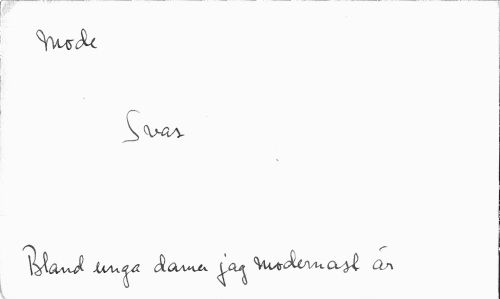 Mode
Svar
Bland unga damer jag modernast är